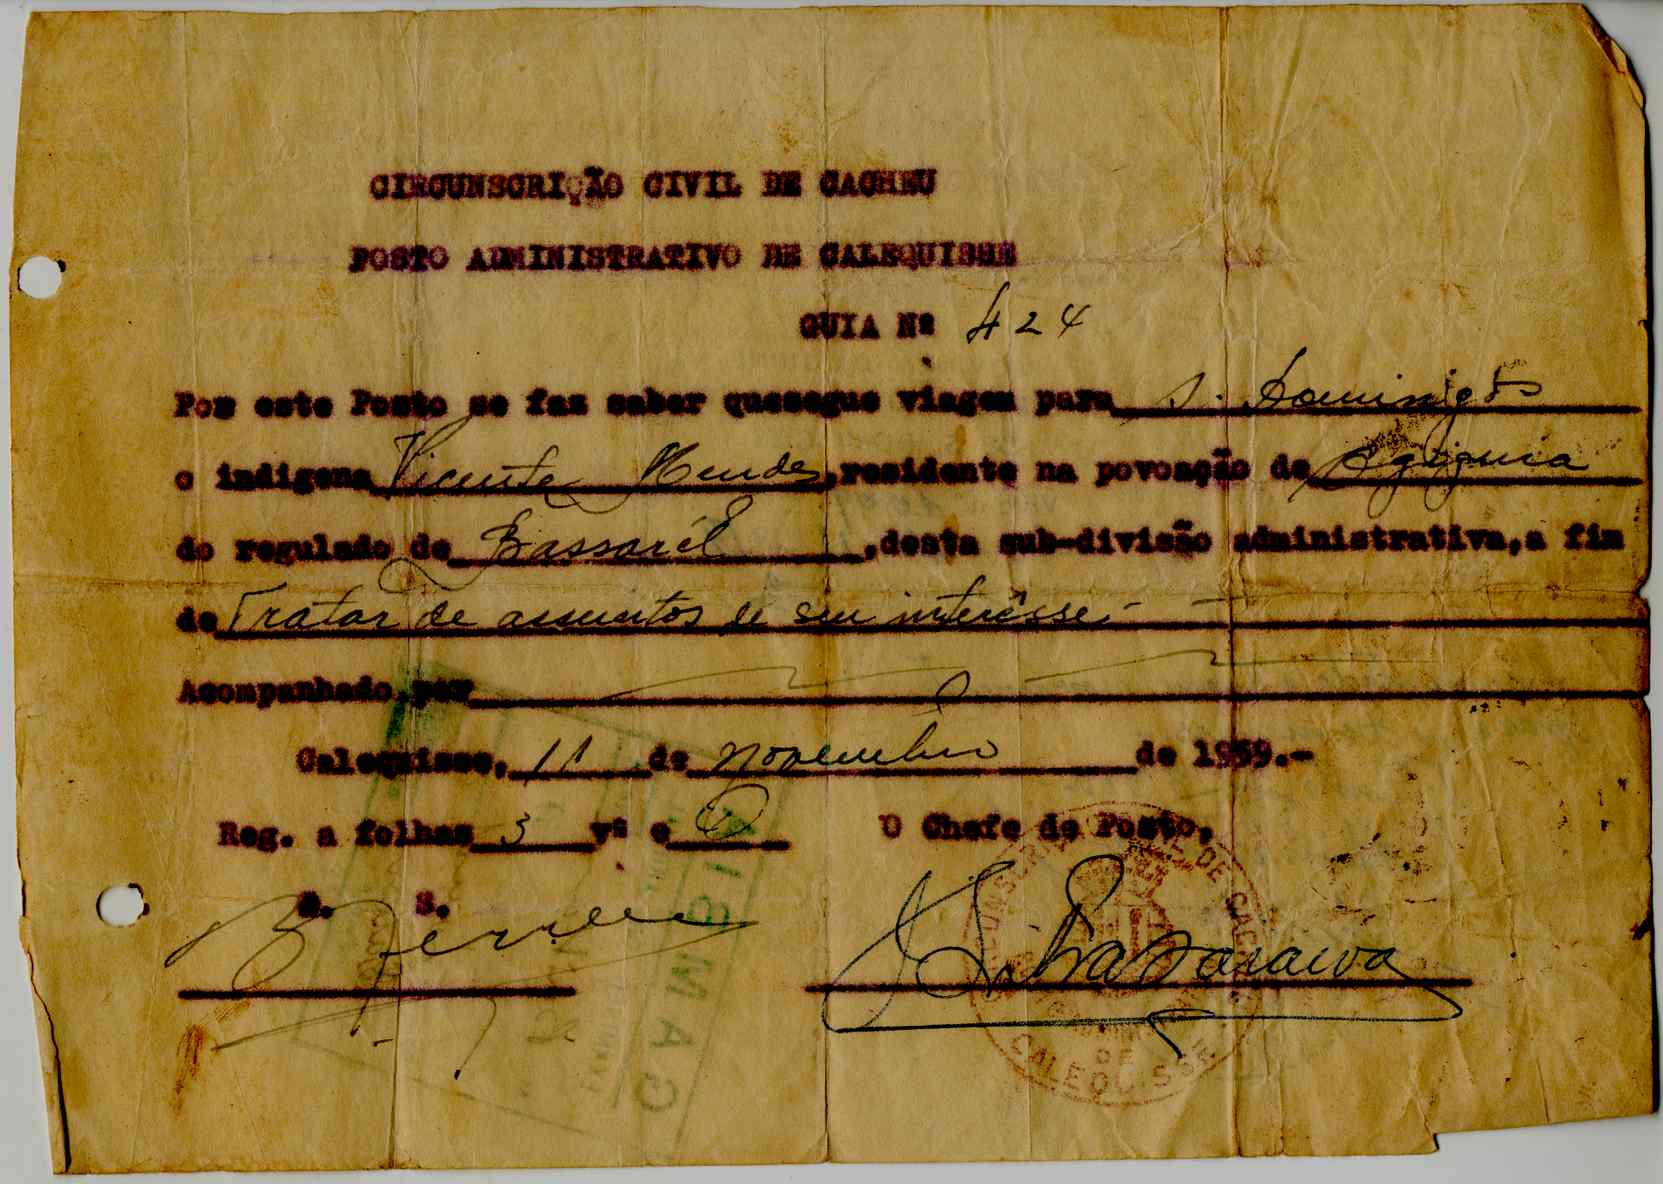 CIRCUNSCRIÇÃO CIVIL DE CACHEU
POSTO ADMINISTRATIVO DE CALEQUISSE
GUIA Nº 424
Por este Posto se faz saber quesegue viagem para S. Domingos
o indigena Vicente Mendes, residente na povoação de
do regulado de Bassarél, desta sub-divisão administrativa, a fim
de Tratar de assuntos de seu interêsse.-
Acompanhado por
Calequisse, 11 de novembro de 1959.-
Reg. a folhas 3 vª e
O Chefe do Posto,
CALEQUISSE